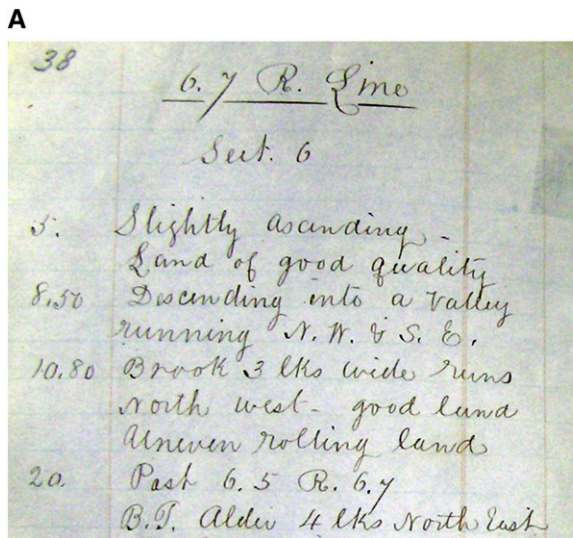 A
38
6.7 R. Line
Sect. 6
5. Slightly ascending -
Land of good quality
8.50 Descending into a Valley
running N. W. & S. E.
10.80 Brook 3 lks wide runs
North west - good land
Uneven rolling land
20. Post 6.5 R. 6.7
B.T. Alder 4 lks North East